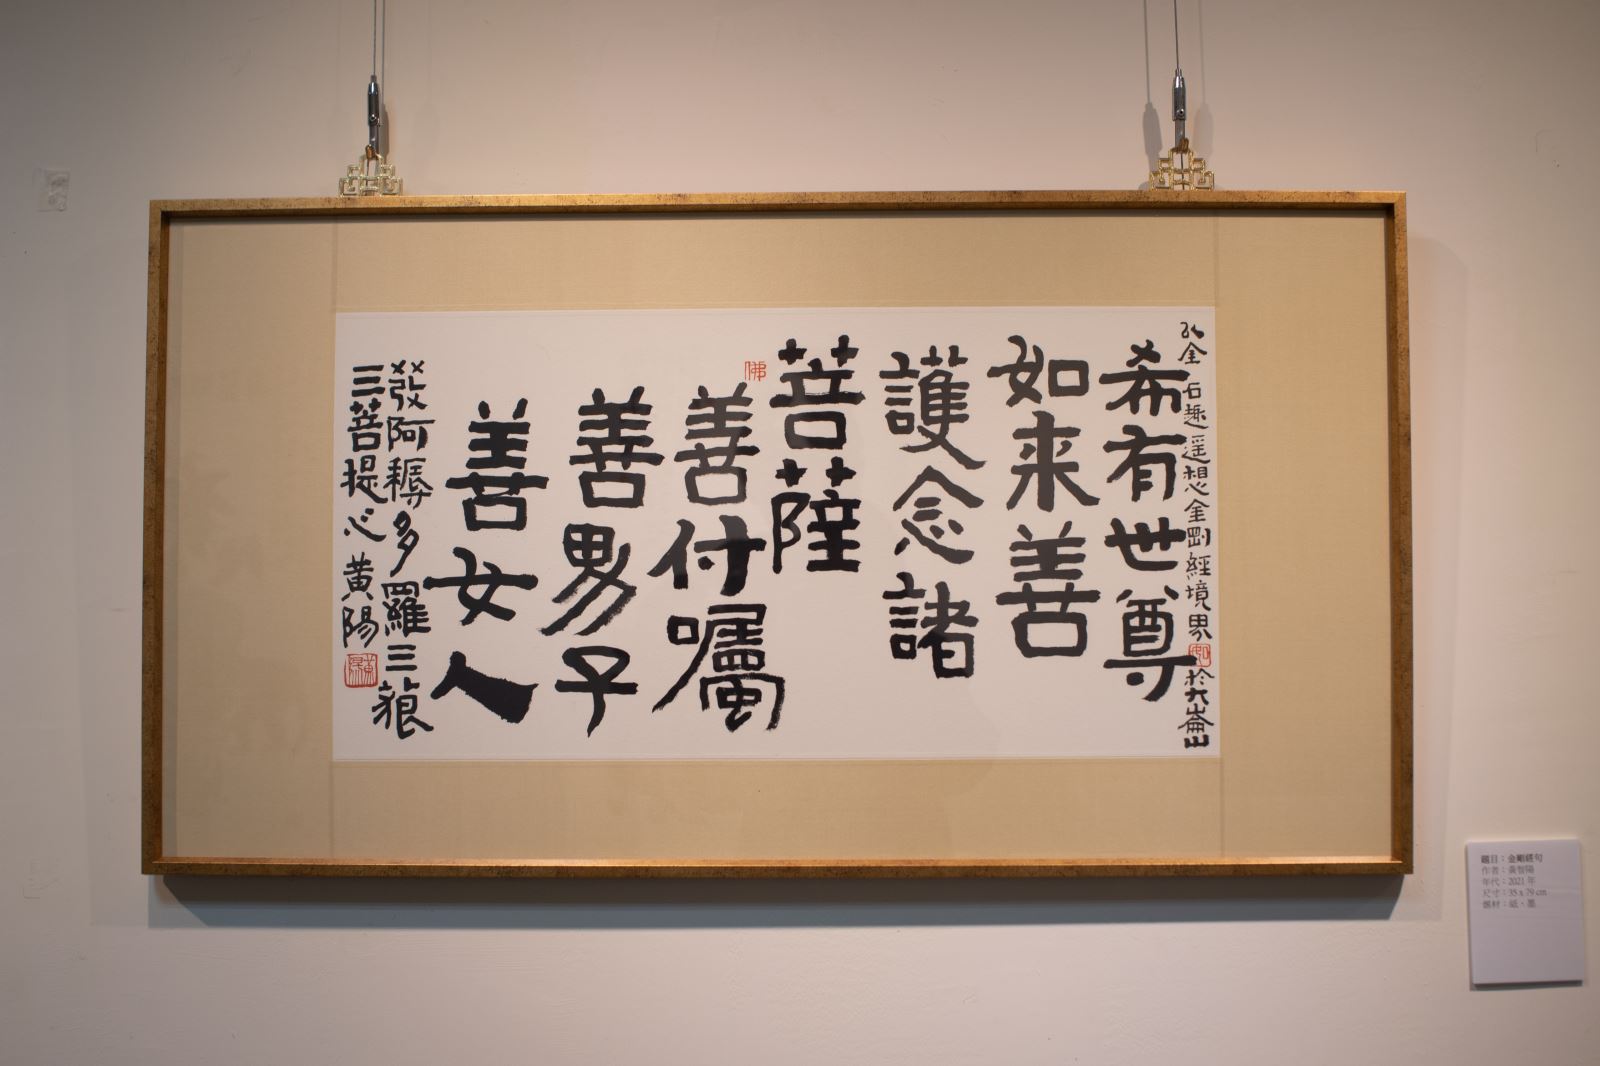 希有世尊
如来善
護念諸
菩薩
善付囑
善男子
善女人
發阿耨多羅三藐
三菩提心 黃陽
以金石趣遥想金剛經境界 於大崙山
佛
題目：金剛經句
作者：黃智陽
年代：2021 年
尺寸：35 x 79 cm
媒材：紙、墨